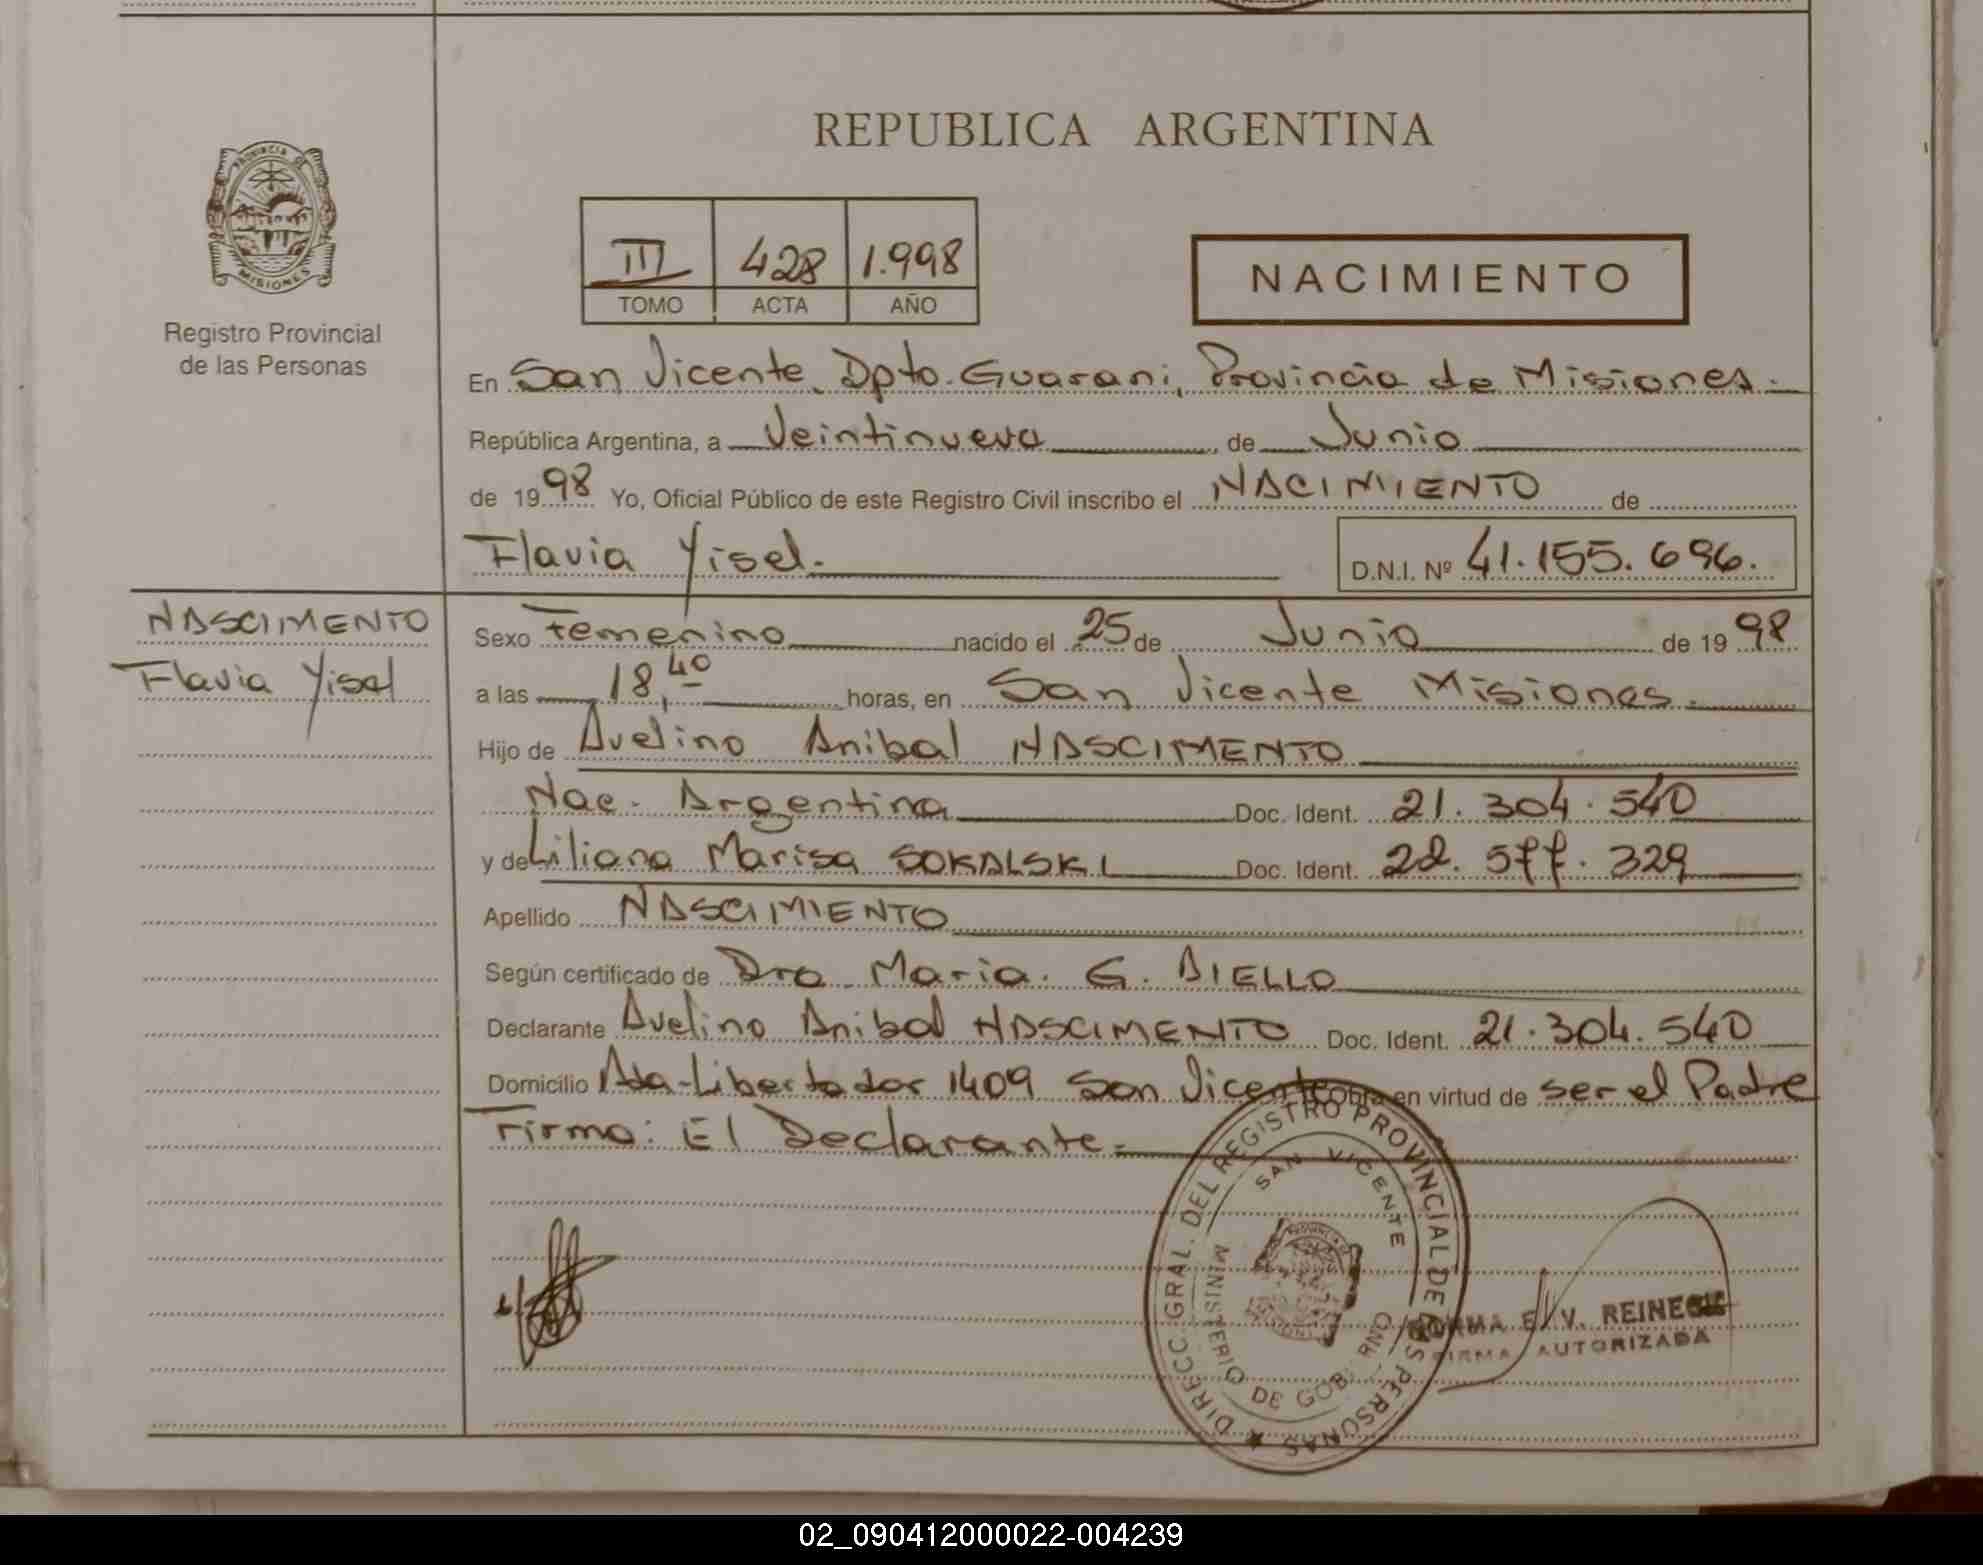 REPUBLICA ARGENTINA
PROVINCIA DE
MISIONES
Registro Provincial
de las Personas
III 428 1.998
TOMO ACTA AÑO
NACIMIENTO
En San Vicente, Dpto. Guarani, Provincia de Misiones.
República Argentina, a Veintinueve de Junio
de 1998 Yo, Oficial Público de este Registro Civil inscribo el NACIMIENTO de
Flavia Yisel. D.N.I. Nº 41.155.696.
NASCIMENTO
Flavia Yisel
Sexo Femenino nacido el 25 de Junio de 1998
a las 18,40 horas, en San Vicente Misiones.
Hijo de Avelino Anibal NASCIMENTO
Nac. Argentina Doc. Ident. 21.304.540
y de Liliana Marisa SOKALSKI Doc. Ident. 22.577.329
Apellido NASCIMIENTO
Según certificado de Dra. Maria. G. AIELLO
Declarante Avelino Anibal NASCIMENTO Doc. Ident. 21.304.540
Domicilio Avda-Libertador 1409 San Vicente obra en virtud de ser el Padre
Firma: El Declarante.
DIRECC. GRAL. DEL REGISTRO PROVINCIAL DE LAS PERSONAS
SAN VICENTE
MINISTERIO DE GOBIERNO
NORMA E. V. REINECK
FIRMA AUTORIZADA
02_090412000022-004239